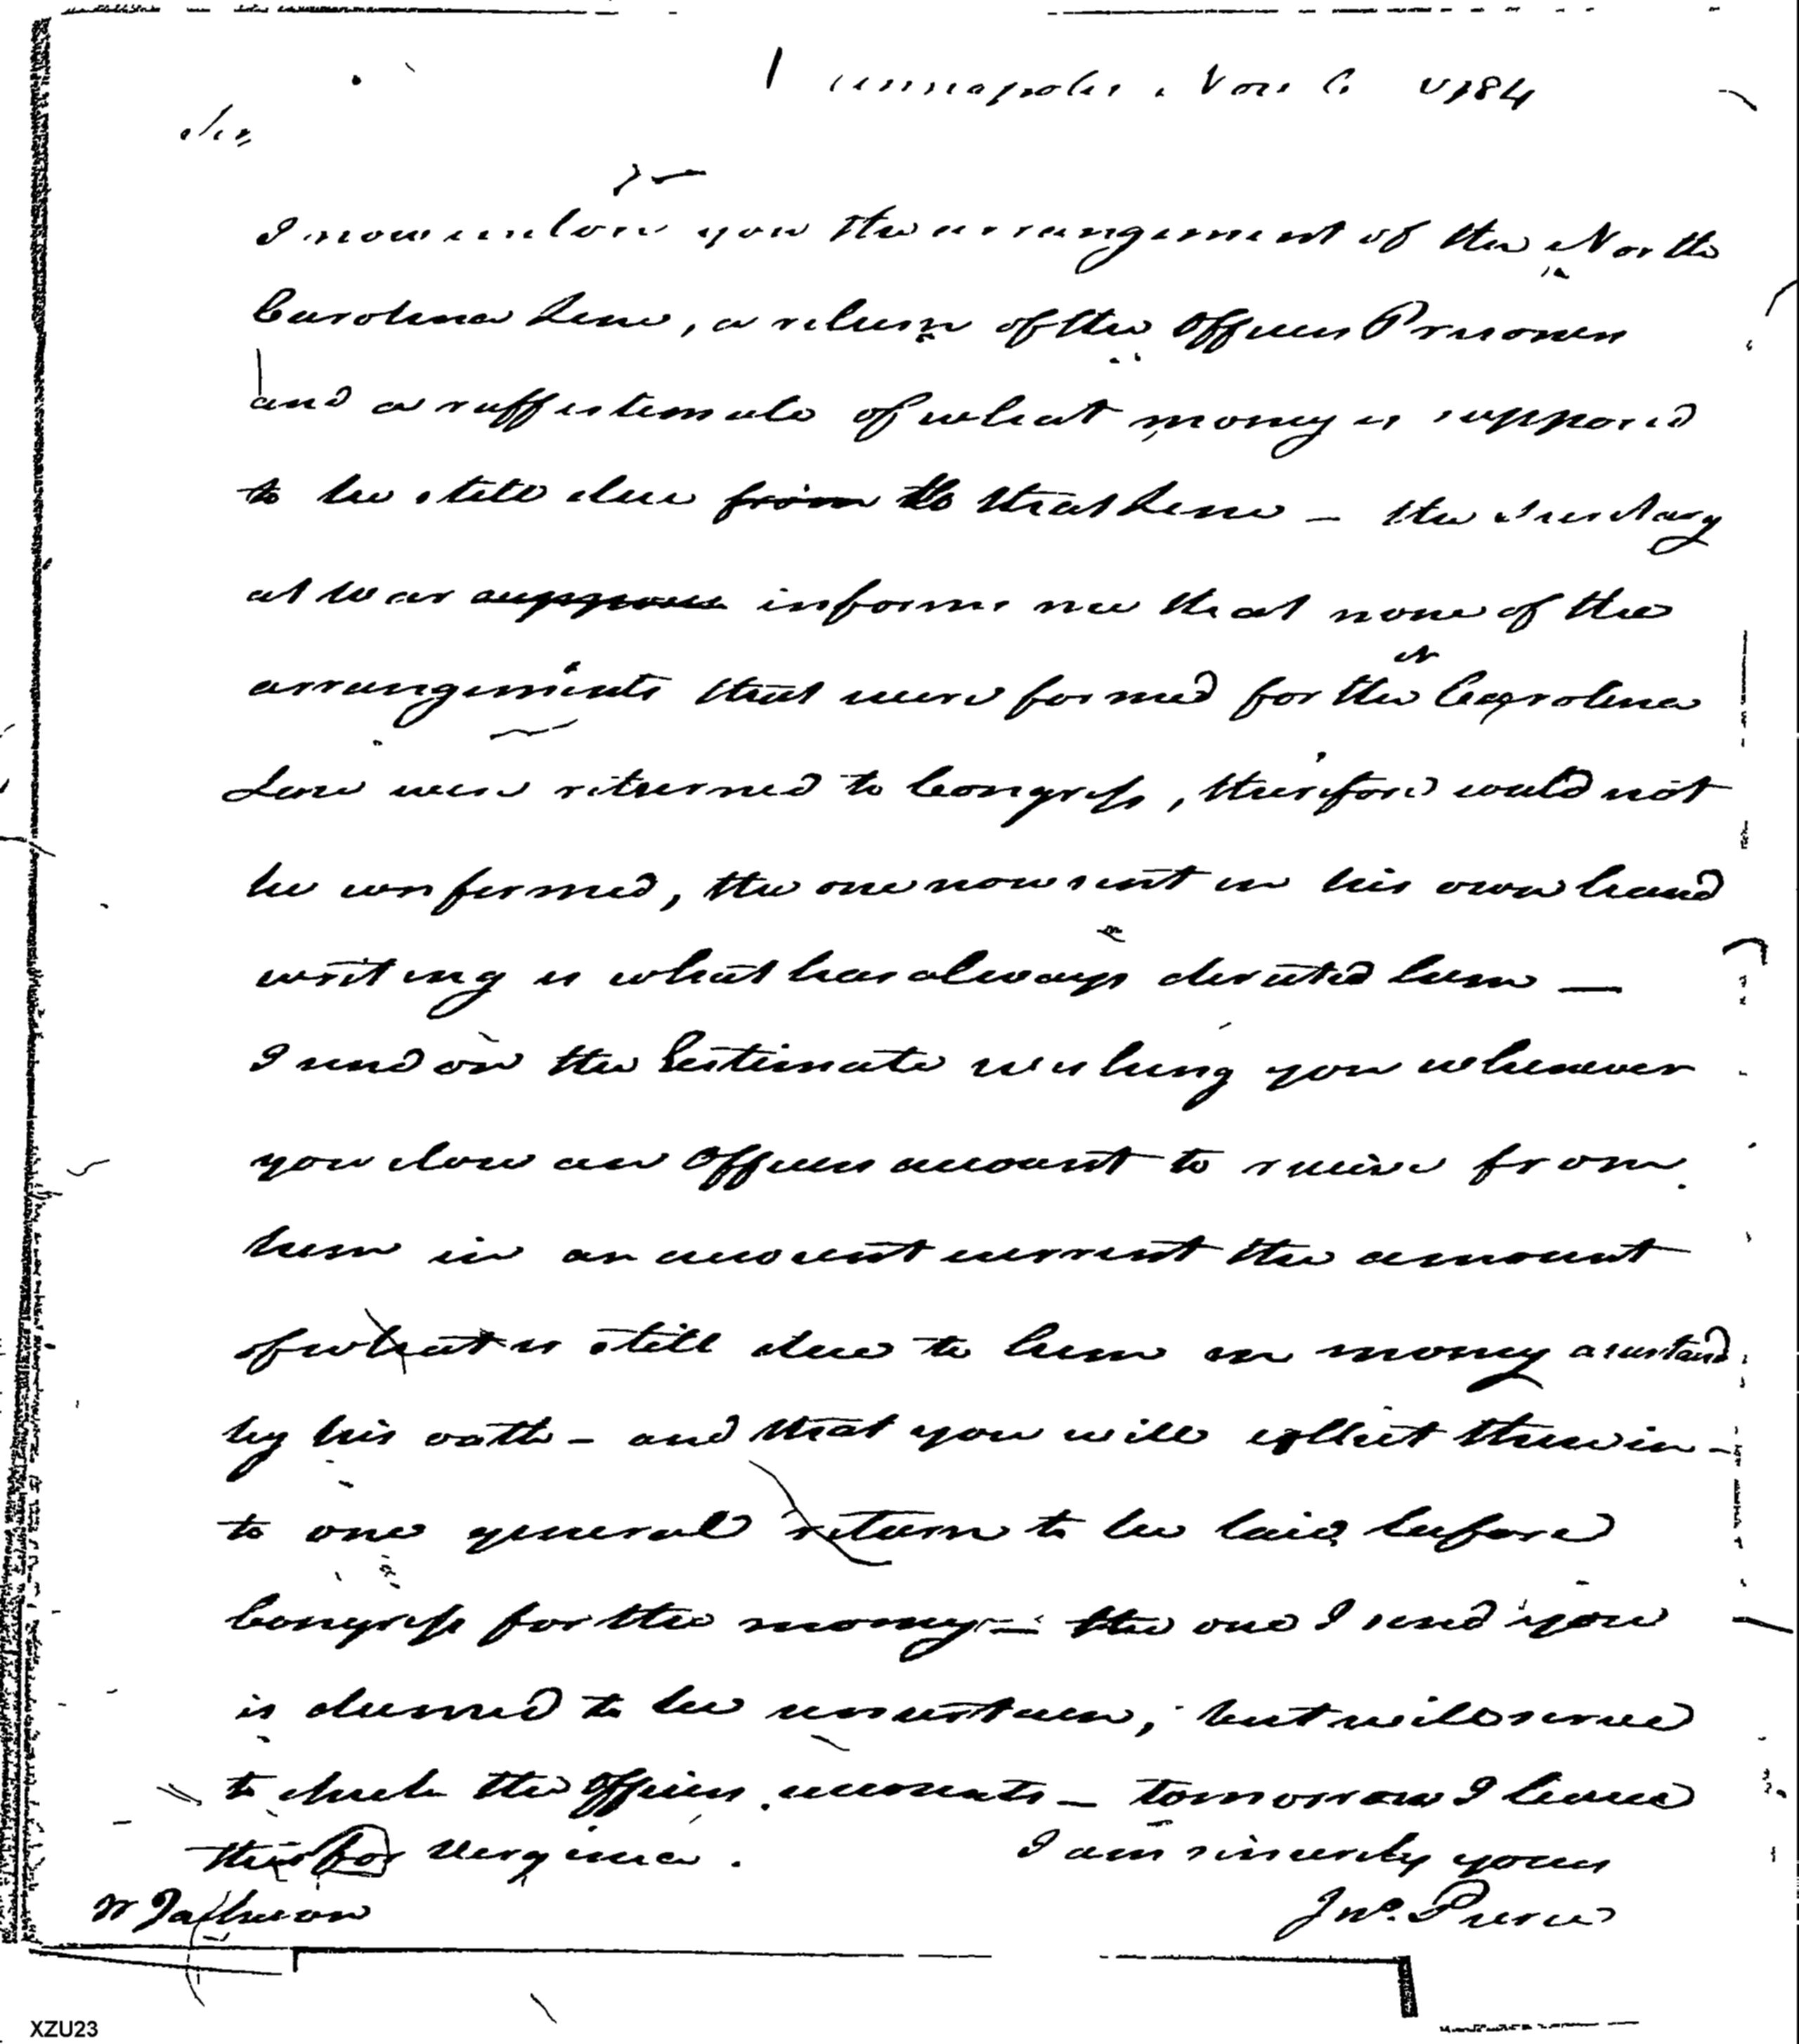 Annapolis, Nov 6 1784
Sir,
I now inclose you the arrangement of the North
Carolina Line, a return of the Officers Prisoners
and a ruff estimate of what money is supposed
to be still due from to that Line — the Secretary
at War suppose informs me that none of the
arrangements that were formed for the N Carolina
Line were returned to Congress, therefore could not
be confirmed, the one now sent in his own hand
writing is what has always directed him —
I send on the Estimate wishing you whenever
you close an Officers account to receive from
him in an account current the amount
of what is still due to him in money
by his oath – and that you will collect these in-
to one general return to be laid before
Congress for the money — the one I send you
is deemed to be uncertain, but will serve
to check the Officers accounts — tomorrow I leave
this for Virginia. I am sincerely yours
Jno. Pierce
XZU23